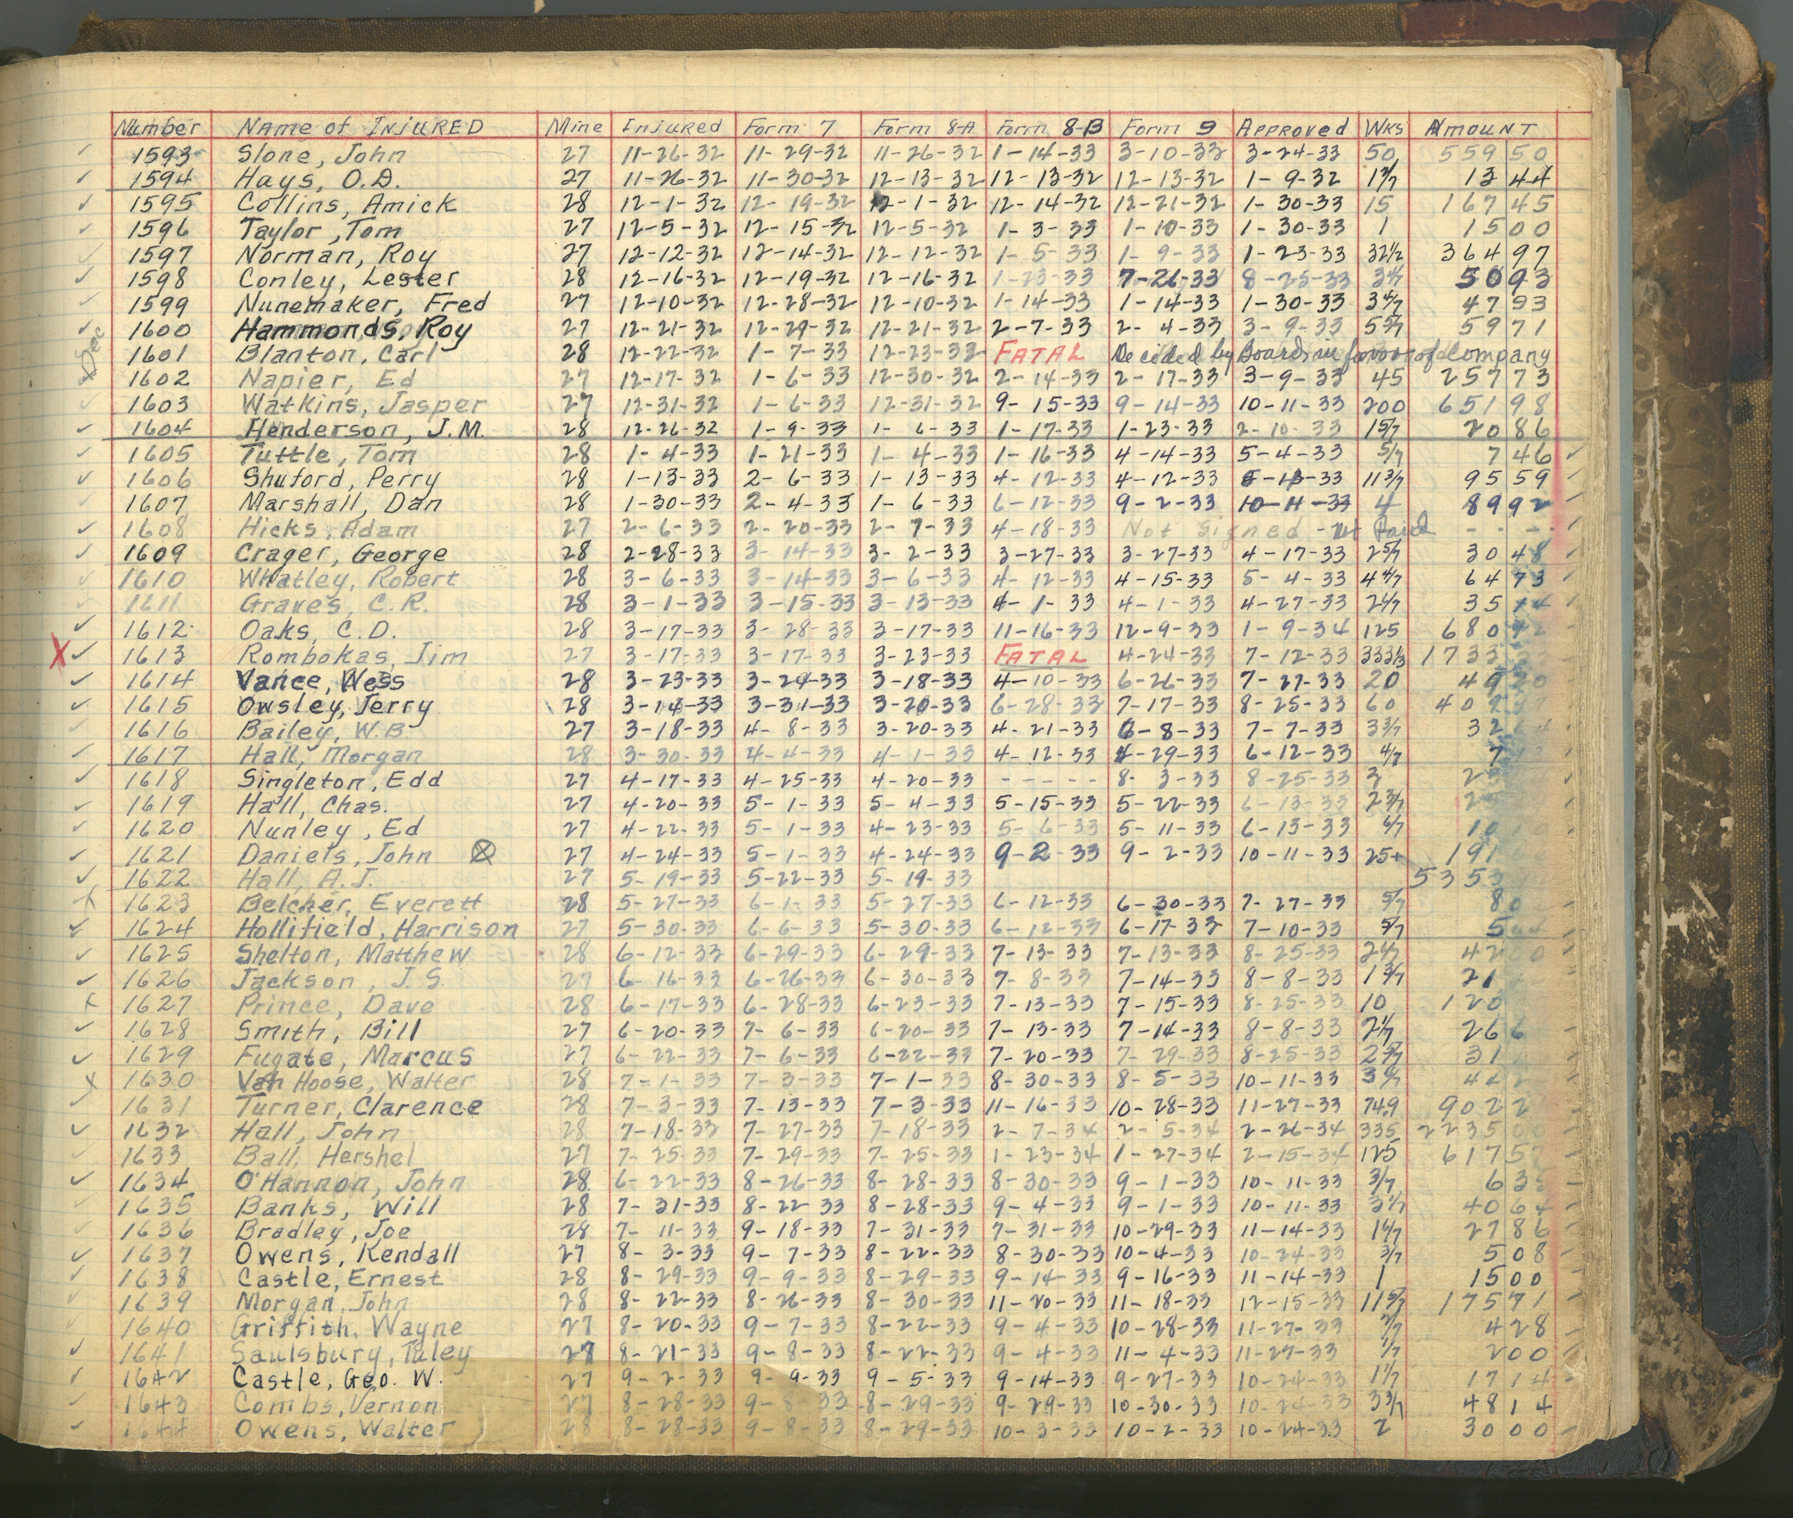 Number Name of Injured Mine Injured Form 7 Form 8-A Form 8-B Form 9 Approved Wks Amount
1593 Slone, John 27 11-26-32 11-29-32 11-26-32 1-14-33 3-10-33 3-24-33 50 559 50
1594 Hays, O.D. 27 11-26-32 11-30-32 12-13-32 12-13-32 12-13-32 1-9-32 13 44
1595 Collins, Amick 28 12-1-32 12-19-32 12-1-32 12-14-32 12-21-32 1-30-33 15 167 45
1596 Taylor, Tom 27 12-5-32 12-15-32 12-5-32 1-3-33 1-10-33 1-30-33 1 15 00
1597 Norman, Roy 27 12-12-32 12-14-32 12-12-32 1-5-33 1-9-33 1-23-33 32 1/2 364 97
1598 Conley, Lester 28 12-16-32 12-19-32 12-16-32 1-23-33 7-26-33 8-25-33 3 4/7 50 93
1599 Nunemaker, Fred 27 12-10-32 12-28-32 12-10-32 1-14-33 1-14-33 1-30-33 3 4/7 47 93
1600 Hammonds, Roy 27 12-21-32 12-29-32 12-21-32 2-7-33 2-4-33 3-9-33 5 5/7 59 71
Dec 1601 Blanton, Carl 28 12-22-32 1-7-33 12-23-32 FATAL Decided by Boards in favor of Company
1602 Napier, Ed 27 12-17-32 1-6-33 12-30-32 2-14-33 2-17-33 3-9-33 45 257 73
1603 Watkins, Jasper 27 12-31-32 1-6-33 12-31-32 9-15-33 9-14-33 10-11-33 200 651 98
1604 Henderson, J.M. 28 12-26-32 1-9-33 1-6-33 1-17-33 1-23-33 2-10-33 1 5/7 20 86
1605 Tuttle, Tom 28 1-4-33 1-21-33 1-4-33 1-16-33 4-14-33 5-4-33 5/7 7 46
1606 Shuford, Perry 28 1-13-33 2-6-33 1-13-33 4-12-33 4-12-33 11 3/7 95 59
1607 Marshall, Dan 28 1-30-33 2-4-33 1-6-33 6-12-33 9-2-33 10-11-33 4 89 92
1608 Hicks, Adam 27 2-6-33 2-20-33 2-7-33 4-18-33 Not Signed - not Paid - - - -
1609 Crager, George 28 2-28-33 3-14-33 3-2-33 3-27-33 3-27-33 4-17-33 2 5/7 30 48
1610 Whatley, Robert 28 3-6-33 3-14-33 3-6-33 4-12-33 4-15-33 5-4-33 4 4/7 64 73
1611 Graves, C.R. 28 3-1-33 3-15-33 3-13-33 4-1-33 4-1-33 4-27-33 35
1612 Oaks, C.D. 28 3-17-33 3-28-33 3-17-33 11-16-33 12-9-33 1-9-34 125 680
X 1613 Rombokas, Jim 27 3-17-33 3-17-33 3-23-33 FATAL 4-24-33 7-12-33 333 1/3 1733
1614 Vance, Wess 28 3-23-33 3-29-33 3-18-33 4-10-33 6-26-33 7-27-33 20
1615 Owsley, Jerry 28 3-14-33 3-31-33 3-20-33 6-28-33 7-17-33 8-25-33 60
1616 Bailey, W.B. 27 3-18-33 4-8-33 3-20-33 4-21-33 6-8-33 7-7-33 3 3/7 32
1617 Hall, Morgan 28 3-30-33 4-4-33 4-1-33 4-12-33 4-29-33 6-12-33 4/7 7
1618 Singleton, Edd 27 4-17-33 4-25-33 4-20-33 - - - - - 8-3-33 8-25-33 2
1619 Hall, Chas. 27 4-20-33 5-1-33 5-4-33 5-15-33 5-22-33 6-13-33 2 3/7
1620 Nunley, Ed 27 4-22-33 5-1-33 4-23-33 5-6-33 5-11-33 6-13-33 6/7 10
1621 Daniels, John 27 4-24-33 5-1-33 4-24-33 9-2-33 9-2-33 10-11-33 25+ 191
1622 Hall, A.J. 27 5-19-33 5-22-33 5-19-33 535
1623 Belcher, Everett 28 5-27-33 6-1-33 5-27-33 6-12-33 6-30-33 7-27-33 5/7 8
1624 Hollifield, Harrison 27 5-30-33 6-6-33 5-30-33 6-12-33 6-17-33 7-10-33 5
1625 Shelton, Matthew 28 6-12-33 6-29-33 6-29-33 7-13-33 7-13-33 8-25-33 42 00
1626 Jackson, J.S. 27 6-16-33 6-26-33 6-30-33 7-8-33 7-14-33 8-8-33 1 3/7 21
1627 Prince, Dave 28 6-17-33 6-28-33 6-23-33 7-13-33 7-15-33 8-25-33 10 120
1628 Smith, Bill 27 6-20-33 7-6-33 6-20-33 7-13-33 7-14-33 8-8-33 26 6
1629 Fugate, Marcus 27 6-22-33 7-6-33 6-22-33 7-20-33 7-29-33 8-25-33 31
1630 Van Hoose, Walter 28 7-1-33 7-3-33 7-1-33 8-30-33 8-5-33 10-11-33
1631 Turner, Clarence 28 7-3-33 7-13-33 7-3-33 11-16-33 10-28-33 11-27-33 74.9 902 2
1632 Hall, John 28 7-18-33 7-27-33 7-18-33 2-7-34 2-5-34 2-26-34 335 2235 00
1633 Ball, Hershel 27 7-25-33 7-29-33 7-25-33 1-23-34 1-27-34 2-15-34 125 617 5
1634 O'Hannon, John 28 6-22-33 8-26-33 8-28-33 8-30-33 9-1-33 10-11-33 3/7 6 3
1635 Banks, Will 28 7-31-33 8-22-33 8-28-33 9-4-33 9-1-33 10-11-33 40 64
1636 Bradley, Joe 28 7-11-33 9-18-33 7-31-33 7-31-33 10-29-33 11-14-33 1 6/7 27 86
1637 Owens, Kendall 27 8-3-33 9-7-33 8-22-33 8-30-33 10-4-33 10-24-33 3/7 5 08
1638 Castle, Ernest 28 8-29-33 9-9-33 8-29-33 9-14-33 9-16-33 11-14-33 1 15 00
1639 Morgan, John 28 8-22-33 8-26-33 8-30-33 11-20-33 11-18-33 12-15-33 11 5/7 175 71
1640 Griffith, Wayne 27 8-20-33 9-7-33 8-22-33 9-4-33 10-28-33 11-27-33 4 28
1641 Saulsbury, Tuley 27 8-21-33 9-8-33 8-22-33 9-4-33 11-4-33 11-27-33 1/7 2 00
1642 Castle, Geo. W. 27 9-2-33 9-9-33 9-5-33 9-14-33 9-27-33 10-24-33 1 1/7 17 14
1643 Combs, Vernon 27 8-28-33 9-8-33 8-29-33 9-29-33 10-30-33 10-24-33 3 3/7 48 14
1644 Owens, Walter 28 8-28-33 9-8-33 8-29-33 10-3-33 10-2-33 10-24-33 2 30 00